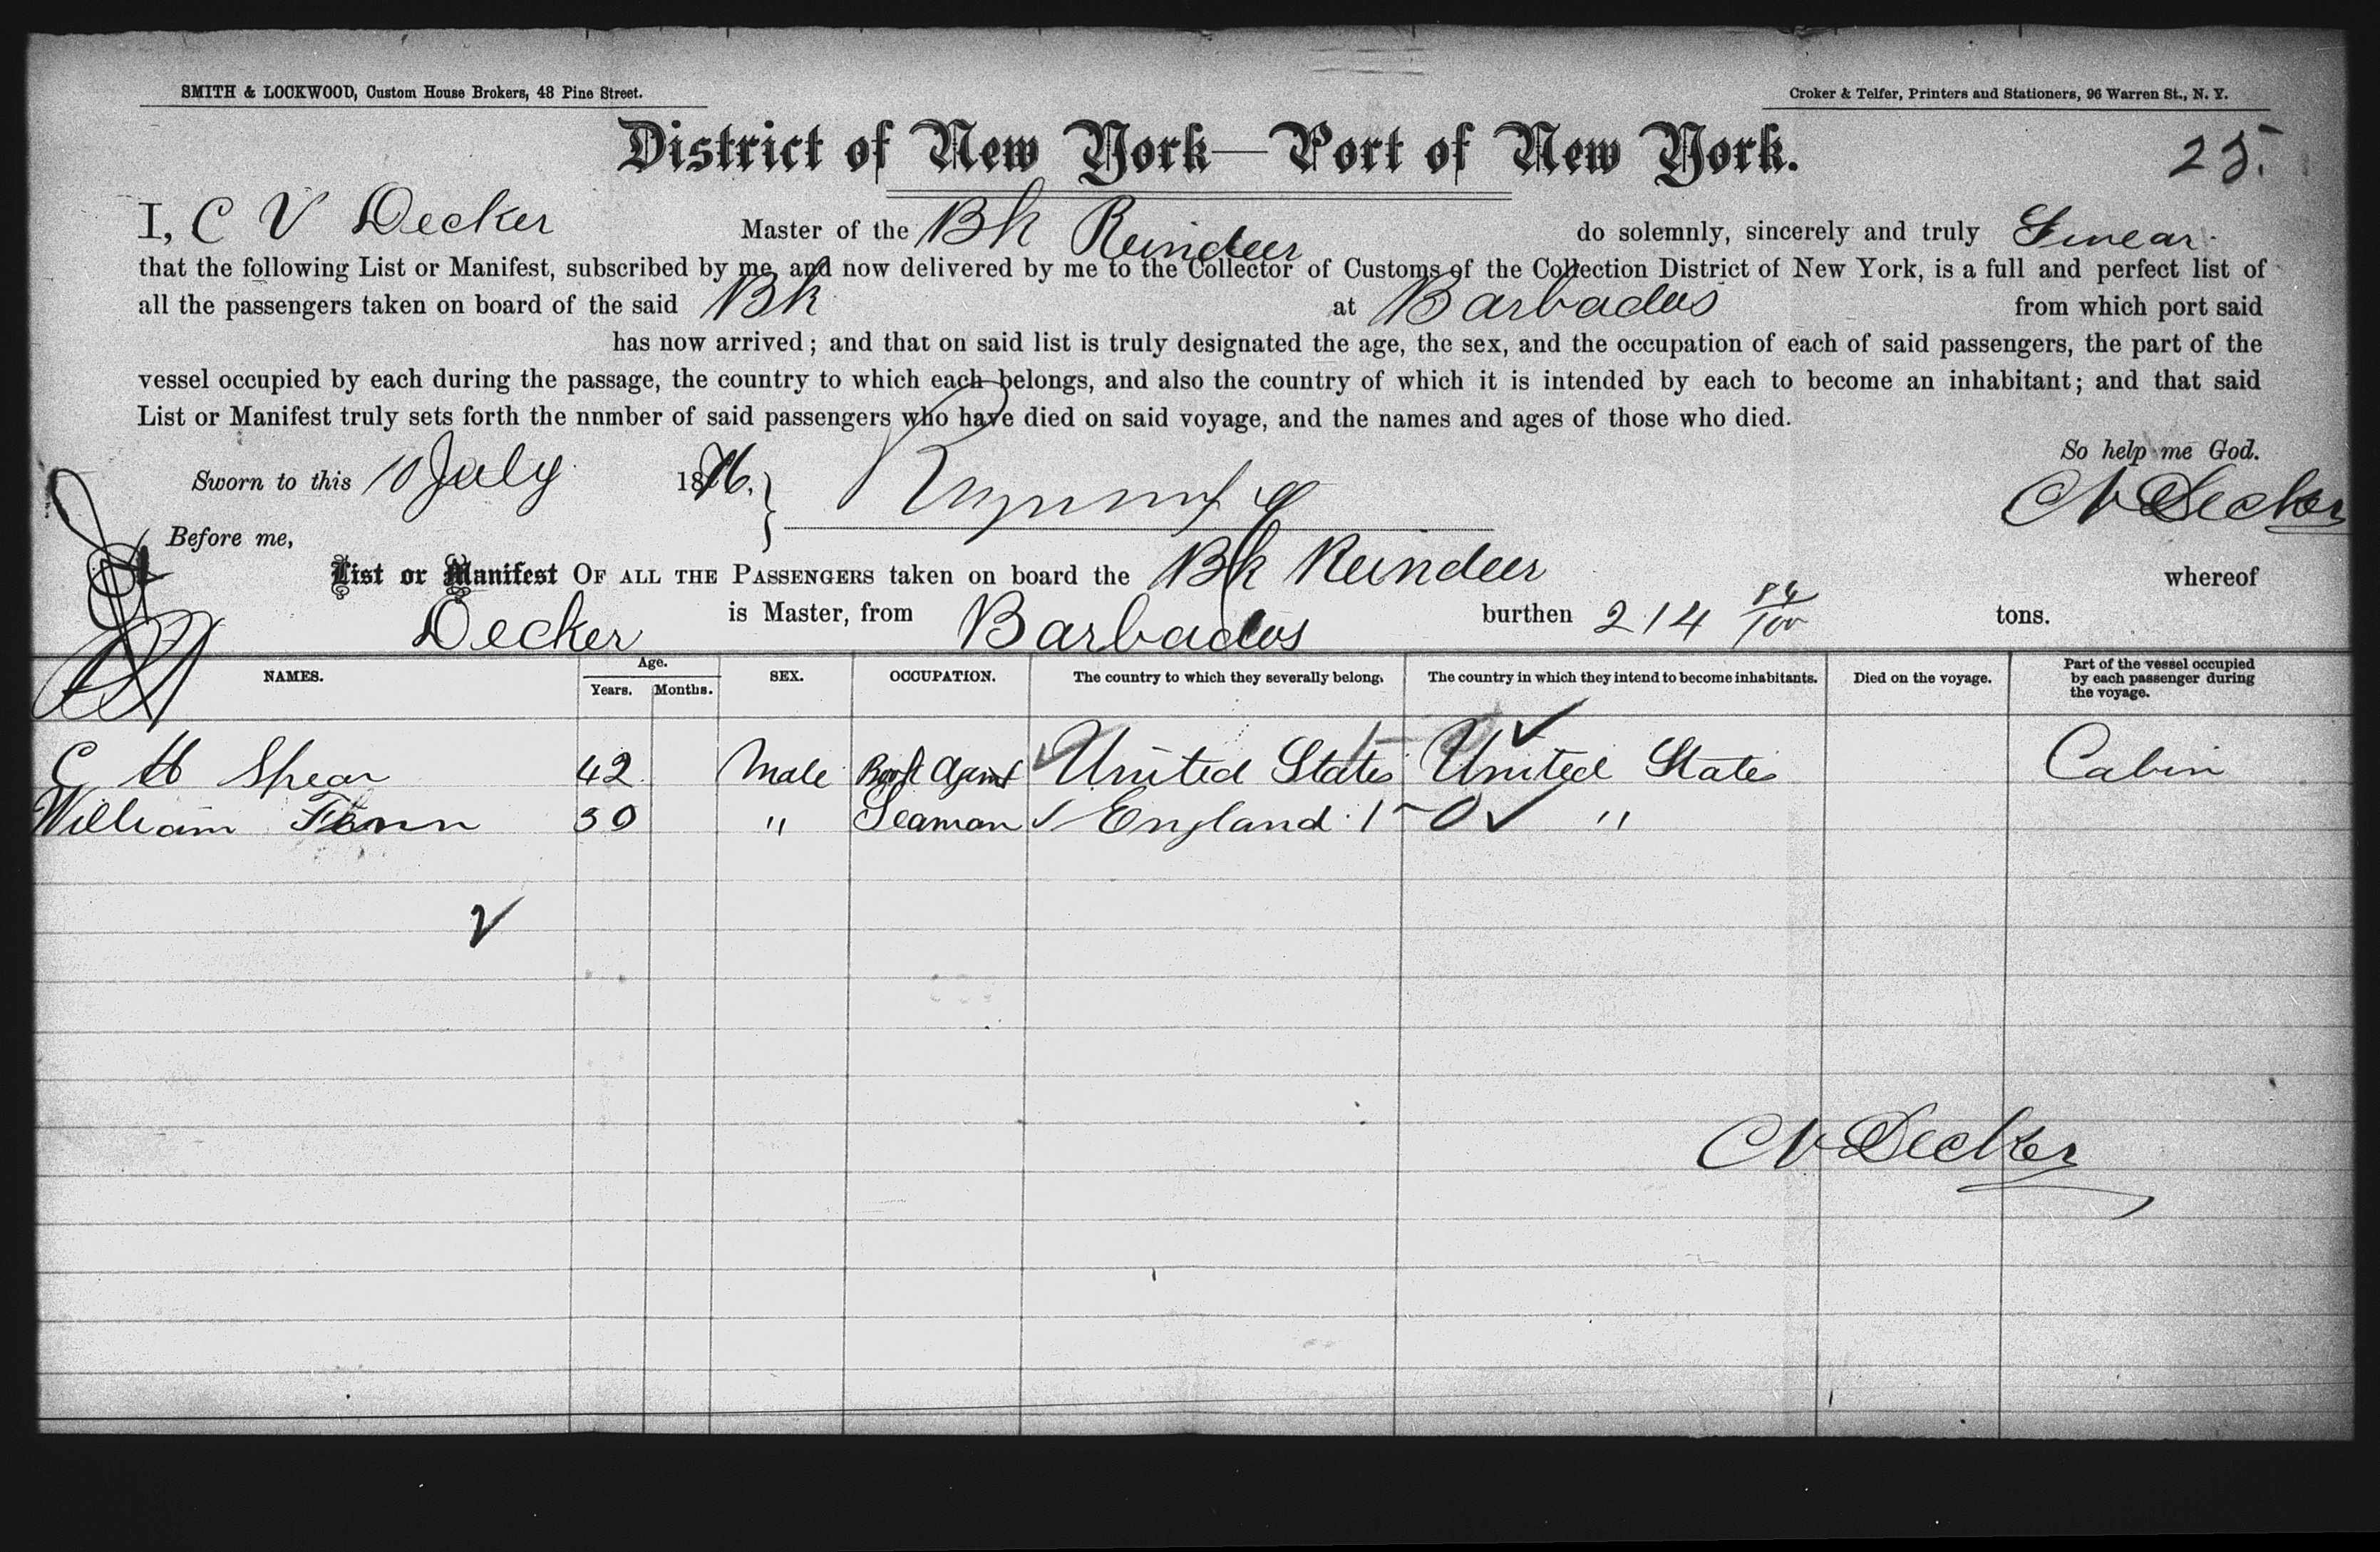 SMITH & LOCKWOOD, Custom House Brokers, 48 Pine Street.
Croker & Telfer, Printers and Stationers, 96 Warren St., N. Y.
District of New York—Port of New York.
25.
I, C V Decker Master of the Bk Reindeer do solemnly, sincerely and truly Swear
that the following List or Manifest, subscribed by me, and now delivered by me to the Collector of Customs of the Collection District of New York, is a full and perfect list of
all the passengers taken on board of the said Bk at Barbados from which port said
has now arrived; and that on said list is truly designated the age, the sex, and the occupation of each of said passengers, the part of the
vessel occupied by each during the passage, the country to which each belongs, and also the country of which it is intended by each to become an inhabitant; and that said
List or Manifest truly sets forth the nnmber of said passengers who have died on said voyage, and the names and ages of those who died.
So help me God.
Sworn to this 10 July 1876.
C V Decker
Before me,
List or Manifest OF ALL THE PASSENGERS taken on board the Bk Reindeer whereof
Decker is Master, from Barbados burthen 214 84/100 tons.
NAMES. Age. Years. Months. SEX. OCCUPATION. The country to which they severally belong. The country in which they intend to become inhabitants. Died on the voyage. Part of the vessel occupied by each passenger during the voyage.
C H Spear 42 Male Agent United States 1 United States Cabin
William 30 " Seaman England 1 0 "
2
C V Decker